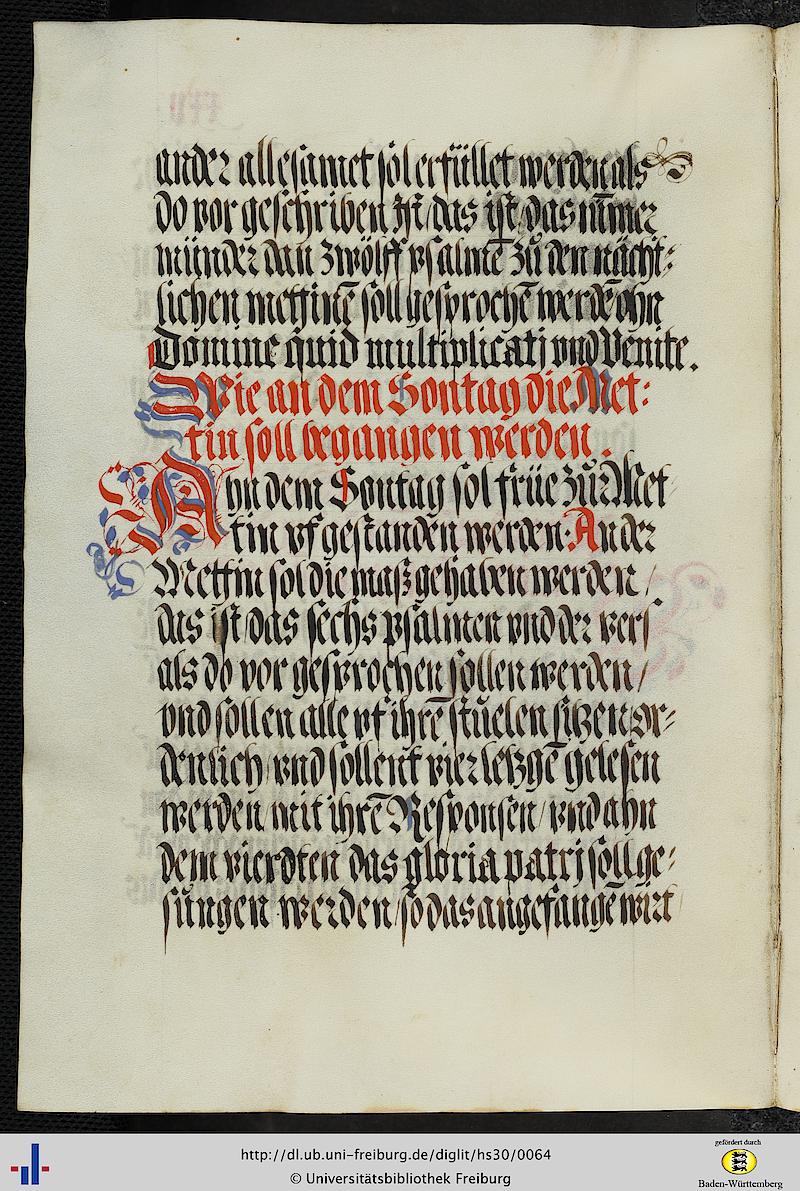 ander allesamet sol erfüllet werden als
do vor geschriben ist / das ist / das nim̄er
münder dan zwölff psalmē zů den nächt⸗
lichen mettinē soll gesprochē werdē ohn
Domine quid multiplicatj vnd Venite.
Wie an dem Sontag die Met⸗
tin soll begangen werden.
Ahn dem Sontag sol früe zůr Met
tin vf gestanden werden. An der
Mettin sol die maß gehaben werden /
das ist / das sechs psalmen vnd der vers
als do vor gesprochen sollen werden /
vnd sollen alle vf ihrē stůelen sitzen or⸗
denlich / vnd sollent vier letzgē gelesen
werden mit ihrē Responsen / vnd ahn
dem vierdten das gloria patrj soll ge⸗
sungen werden / so das angefangē wirt
http://dl.ub.uni-freiburg.de/diglit/hs30/0064
© Universitätsbibliothek Freiburg
gefördert durch
Baden-Württemberg